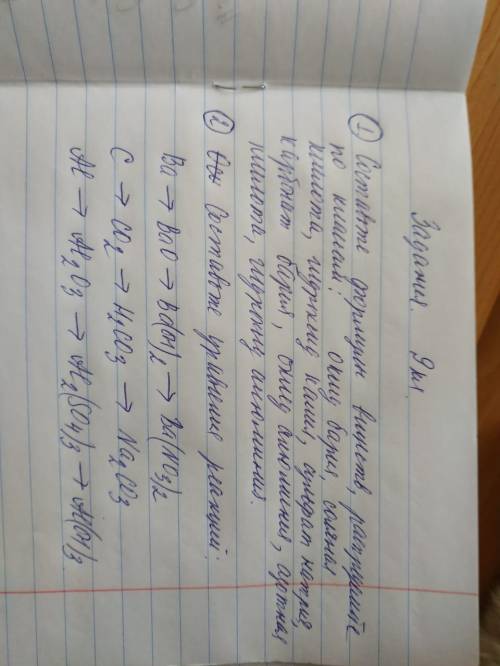 Задания. 9 кл.
① Составьте формулы веществ, распределите
по классам: оксид бария, соляная
кислота, гидроксид калия, сульфат натрия,
карбонат бария, оксид алюминия, азотная
кислота, гидроксид алюминия.
② Составьте уравнения реакций:
Ba → BaO → Ba(OH)₂ → Ba(NO₃)₂
C → CO₂ → H₂CO₃ → Na₂CO₃
Al → Al₂O₃ → Al₂(SO₄)₃ → Al(OH)₃